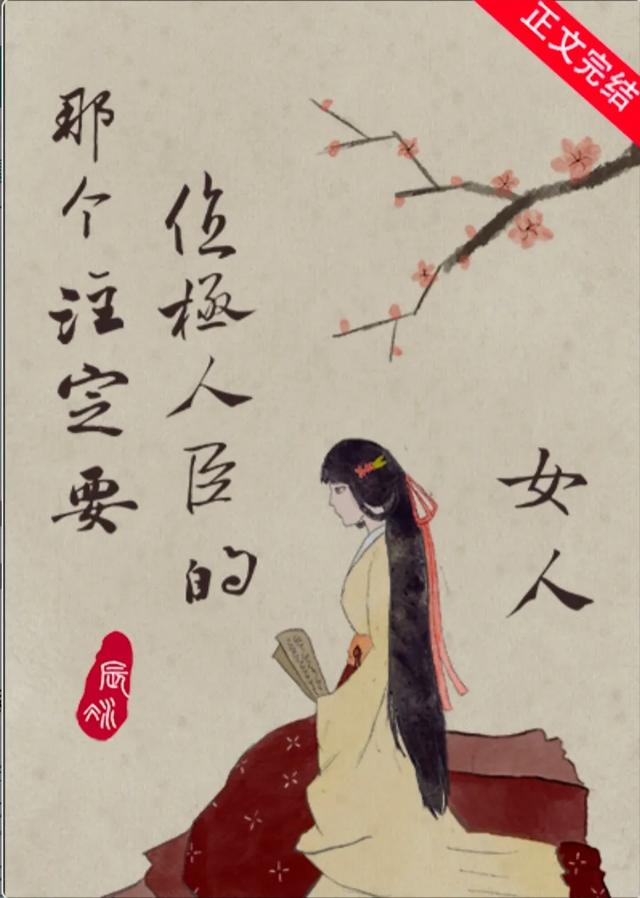 正文完结
那个註定要
位極人臣的
女人
辰